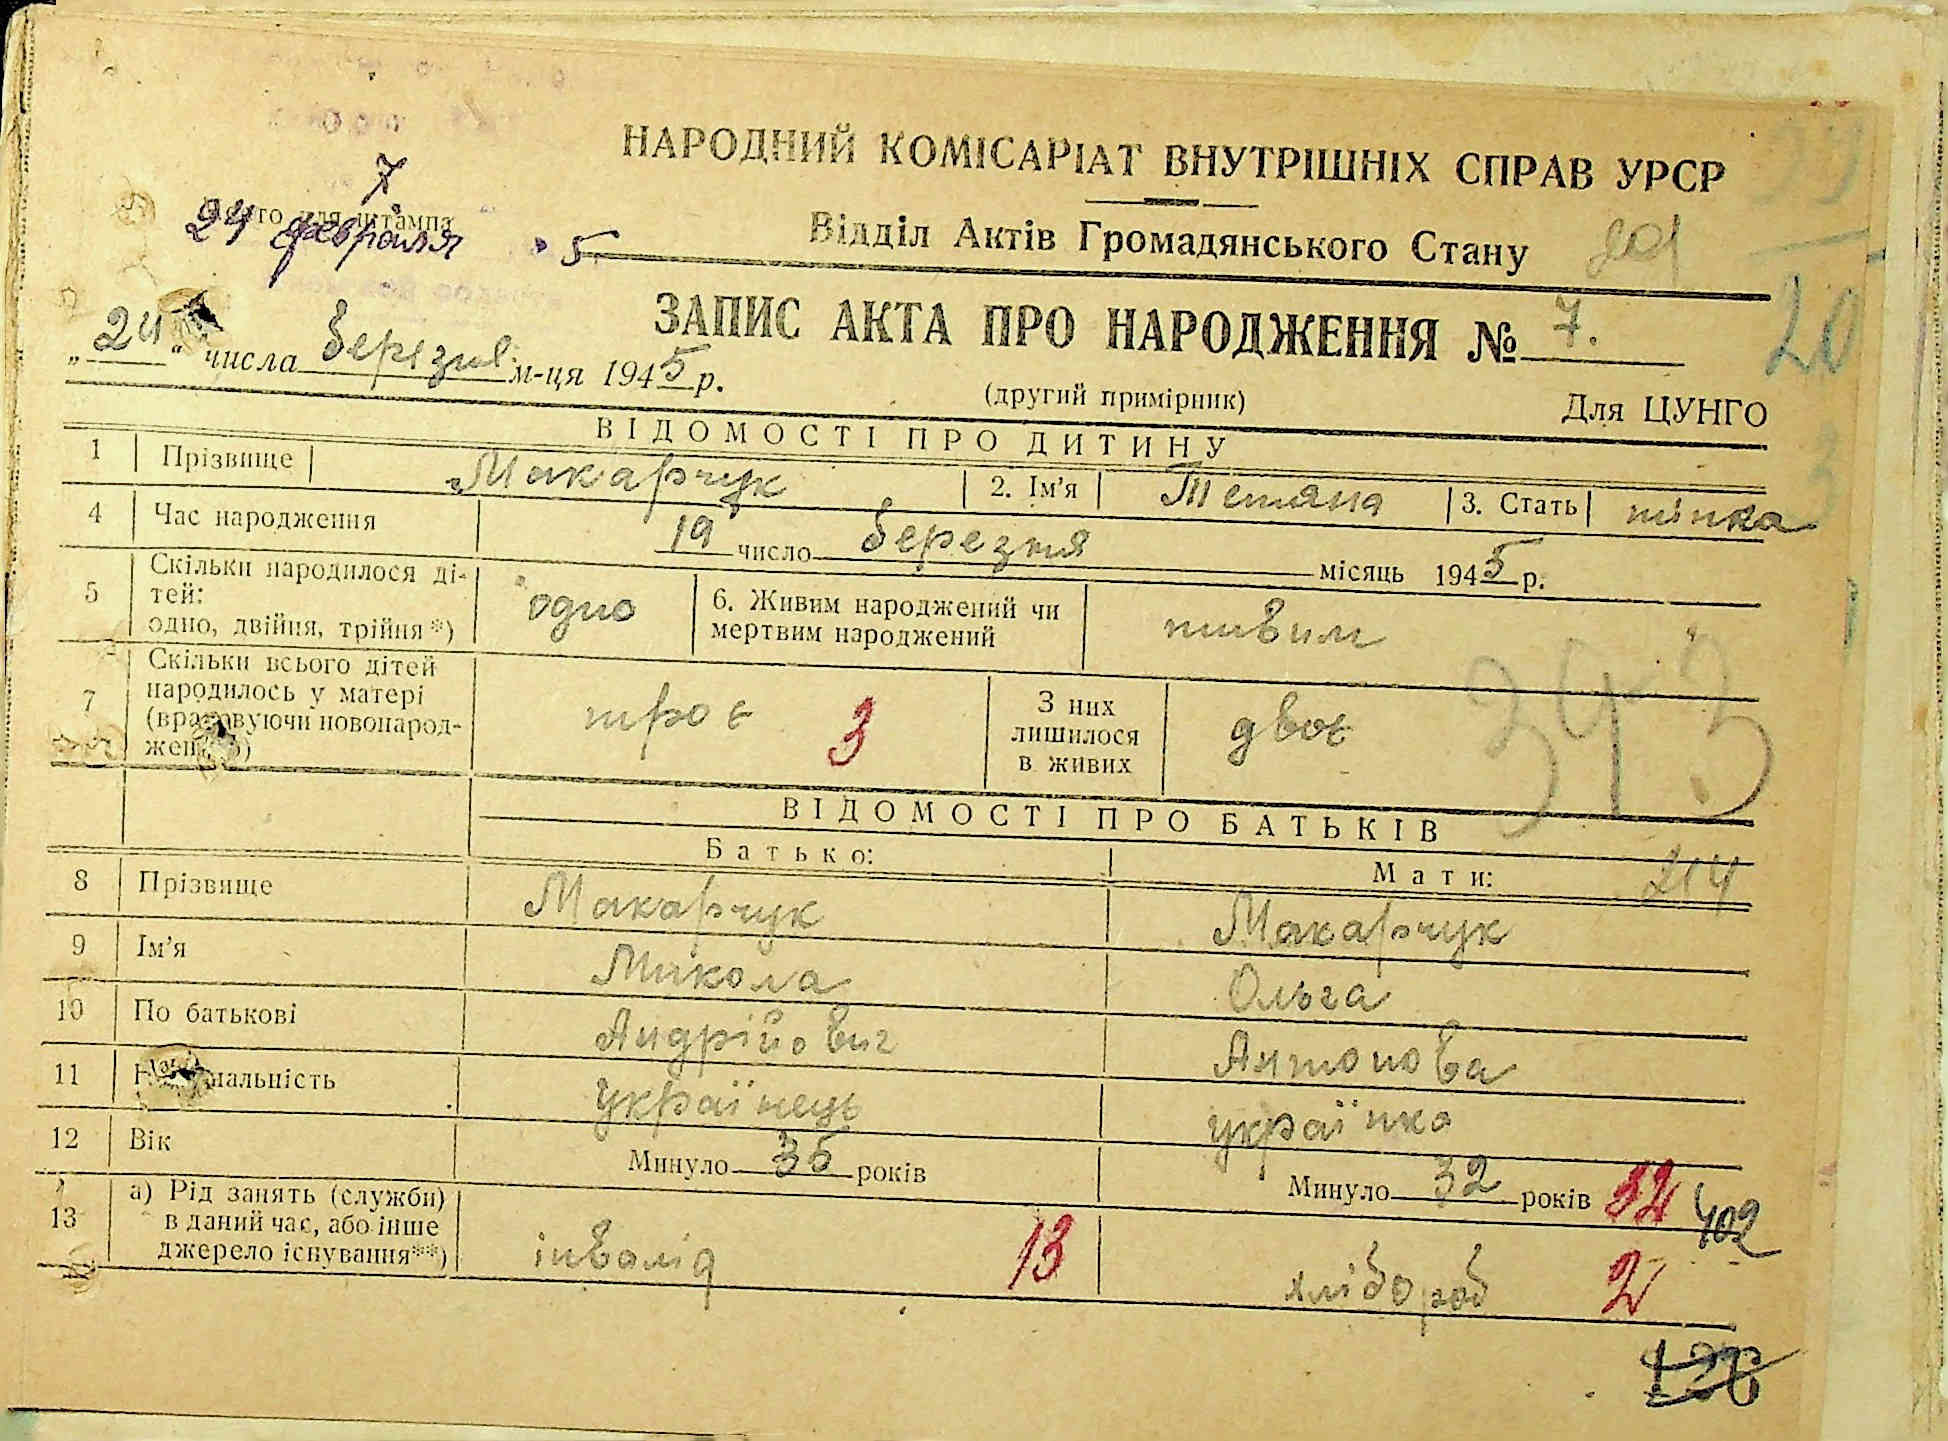 НАРОДНИЙ КОМІСАРІАТ ВНУТРІШНІХ СПРАВ УРСР
7
24 февраля 5
Відділ Актів Громадянського Стану
ЗАПИС АКТА ПРО НАРОДЖЕННЯ № 7.
20
„24“ числа березня м-ця 1945 р.
(другий примірник)
Для ЦУНГО
ВІДОМОСТІ ПРО ДИТИНУ
1 Прізвище Макарчук 2. Ім'я Тетяна 3. Стать жінка
4 Час народження 19 число березня місяць 1945 р.
5 Скільки народилося ді-
тей:
одно, двійня, трійня*) одно 6. Живим народжений чи
мертвим народжений живим
7 Скільки всього дітей
народилось у матері
(враховуючи новонарод-
жен) троє 3 З них
лишилося
в живих двоє
343
ВІДОМОСТІ ПРО БАТЬКІВ
Батько: Мати: 214
8 Прізвище Макарчук Макарчук
9 Ім'я Микола Ольга
10 По батькові Андрійович Антонова
11 Національність українець українка
12 Вік Минуло 35 років Минуло 32 років 32 402
13 а) Рід занять (служби)
в даний час, або інше
джерело існування**) інвалід 13 хлібороб 2